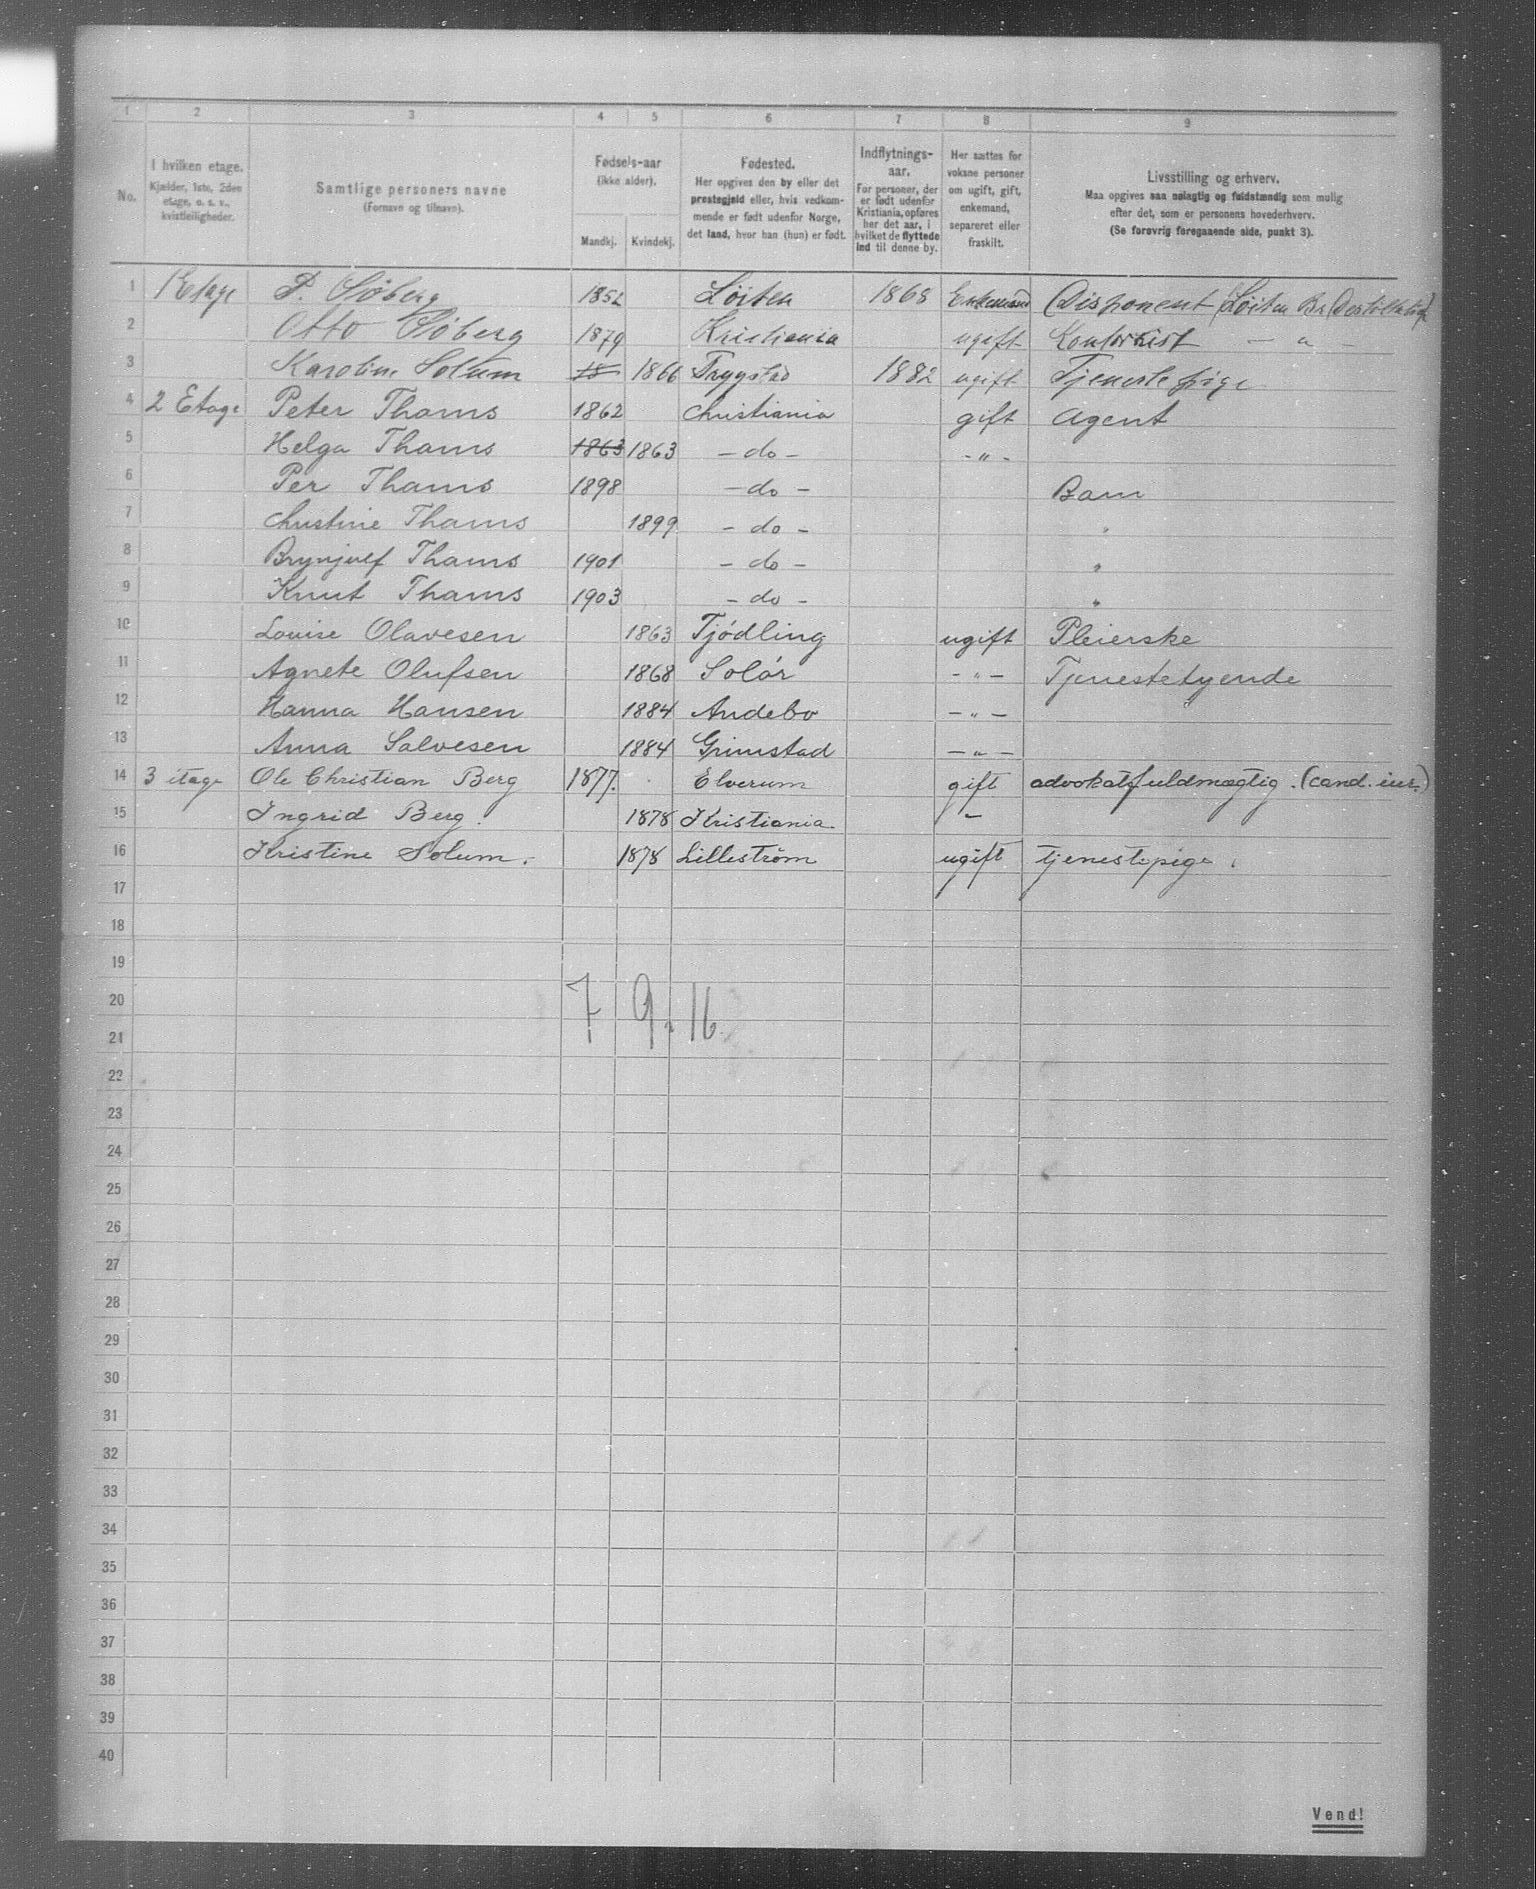 1 2 3 4 5 6 7 8 9
No.
I hvilken etage.
Kjælder, 1ste, 2den
etage, o. s. v.,
kvistleiligheder.
Samtlige personers navne
(Fornavn og tilnavn).
Fødsels-aar
(ikke alder).
Mandkj. Kvindekj.
Fødested.
Her opgives den by eller det
prestegjeld eller, hvis vedkom-
mende er født udenfor Norge,
det land, hvor han (hun) er født.
Indflytnings-
aar.
For personer, der
er født udenfor
Kristiania, opføres
her det aar, i
hvilket de flyttede
ind til denne by.
Her sættes for
voksne personer
om ugift, gift,
enkemand,
separeret eller
fraskilt.
Livsstilling og erhverv.
Maa opgives saa nøiagtig og fuldstændig som mulig
efter det, som er personens hovederhverv.
(Se forøvrig foregaaende side, punkt 3).
1 1 Etage P. Søberg 1852 Løiten 1868 Enkemand Disponent (Løiten Br.
2 Otto Søberg 1879 Kristiania ugift Kontorist — " —
3 Karoline Solum 18 1866 Trygstad 1882 ugift Tjenestepige
4 2 Etage Peter Thams 1862 Christiania gift Agent
5 Helga Thams 1863 1863 — do — - " -
6 Per Thams 1898 — do — Barn
7 Christine Thams 1899 — do — "
8 Brynjulf Thams 1901 — do — "
9 Knut Thams 1903 — do — "
10 Louise Olavesen 1863 Tjödling ugift Pleierske
11 Agnete Olufsen 1868 Solör - " - Tjenestetyende
12 Hanna Hansen 1884 Andebo — " —
13 Anna Salvesen 1884 Grimstad — " —
14 3 etage Ole Christian Berg 1877. Elverum gift advokatfuldmægtig. (cand. iur.)
15 Ingrid Berg. 1878 Kristiania. "
16 Kristine Solum. 1878 Lilleström ugift tjenestepige.
17
18
19
20 7 9. 16.
21
22
23
24
25
26
27
28
29
30
31
32
33
34
35
36
37
38
39
40
Vend!